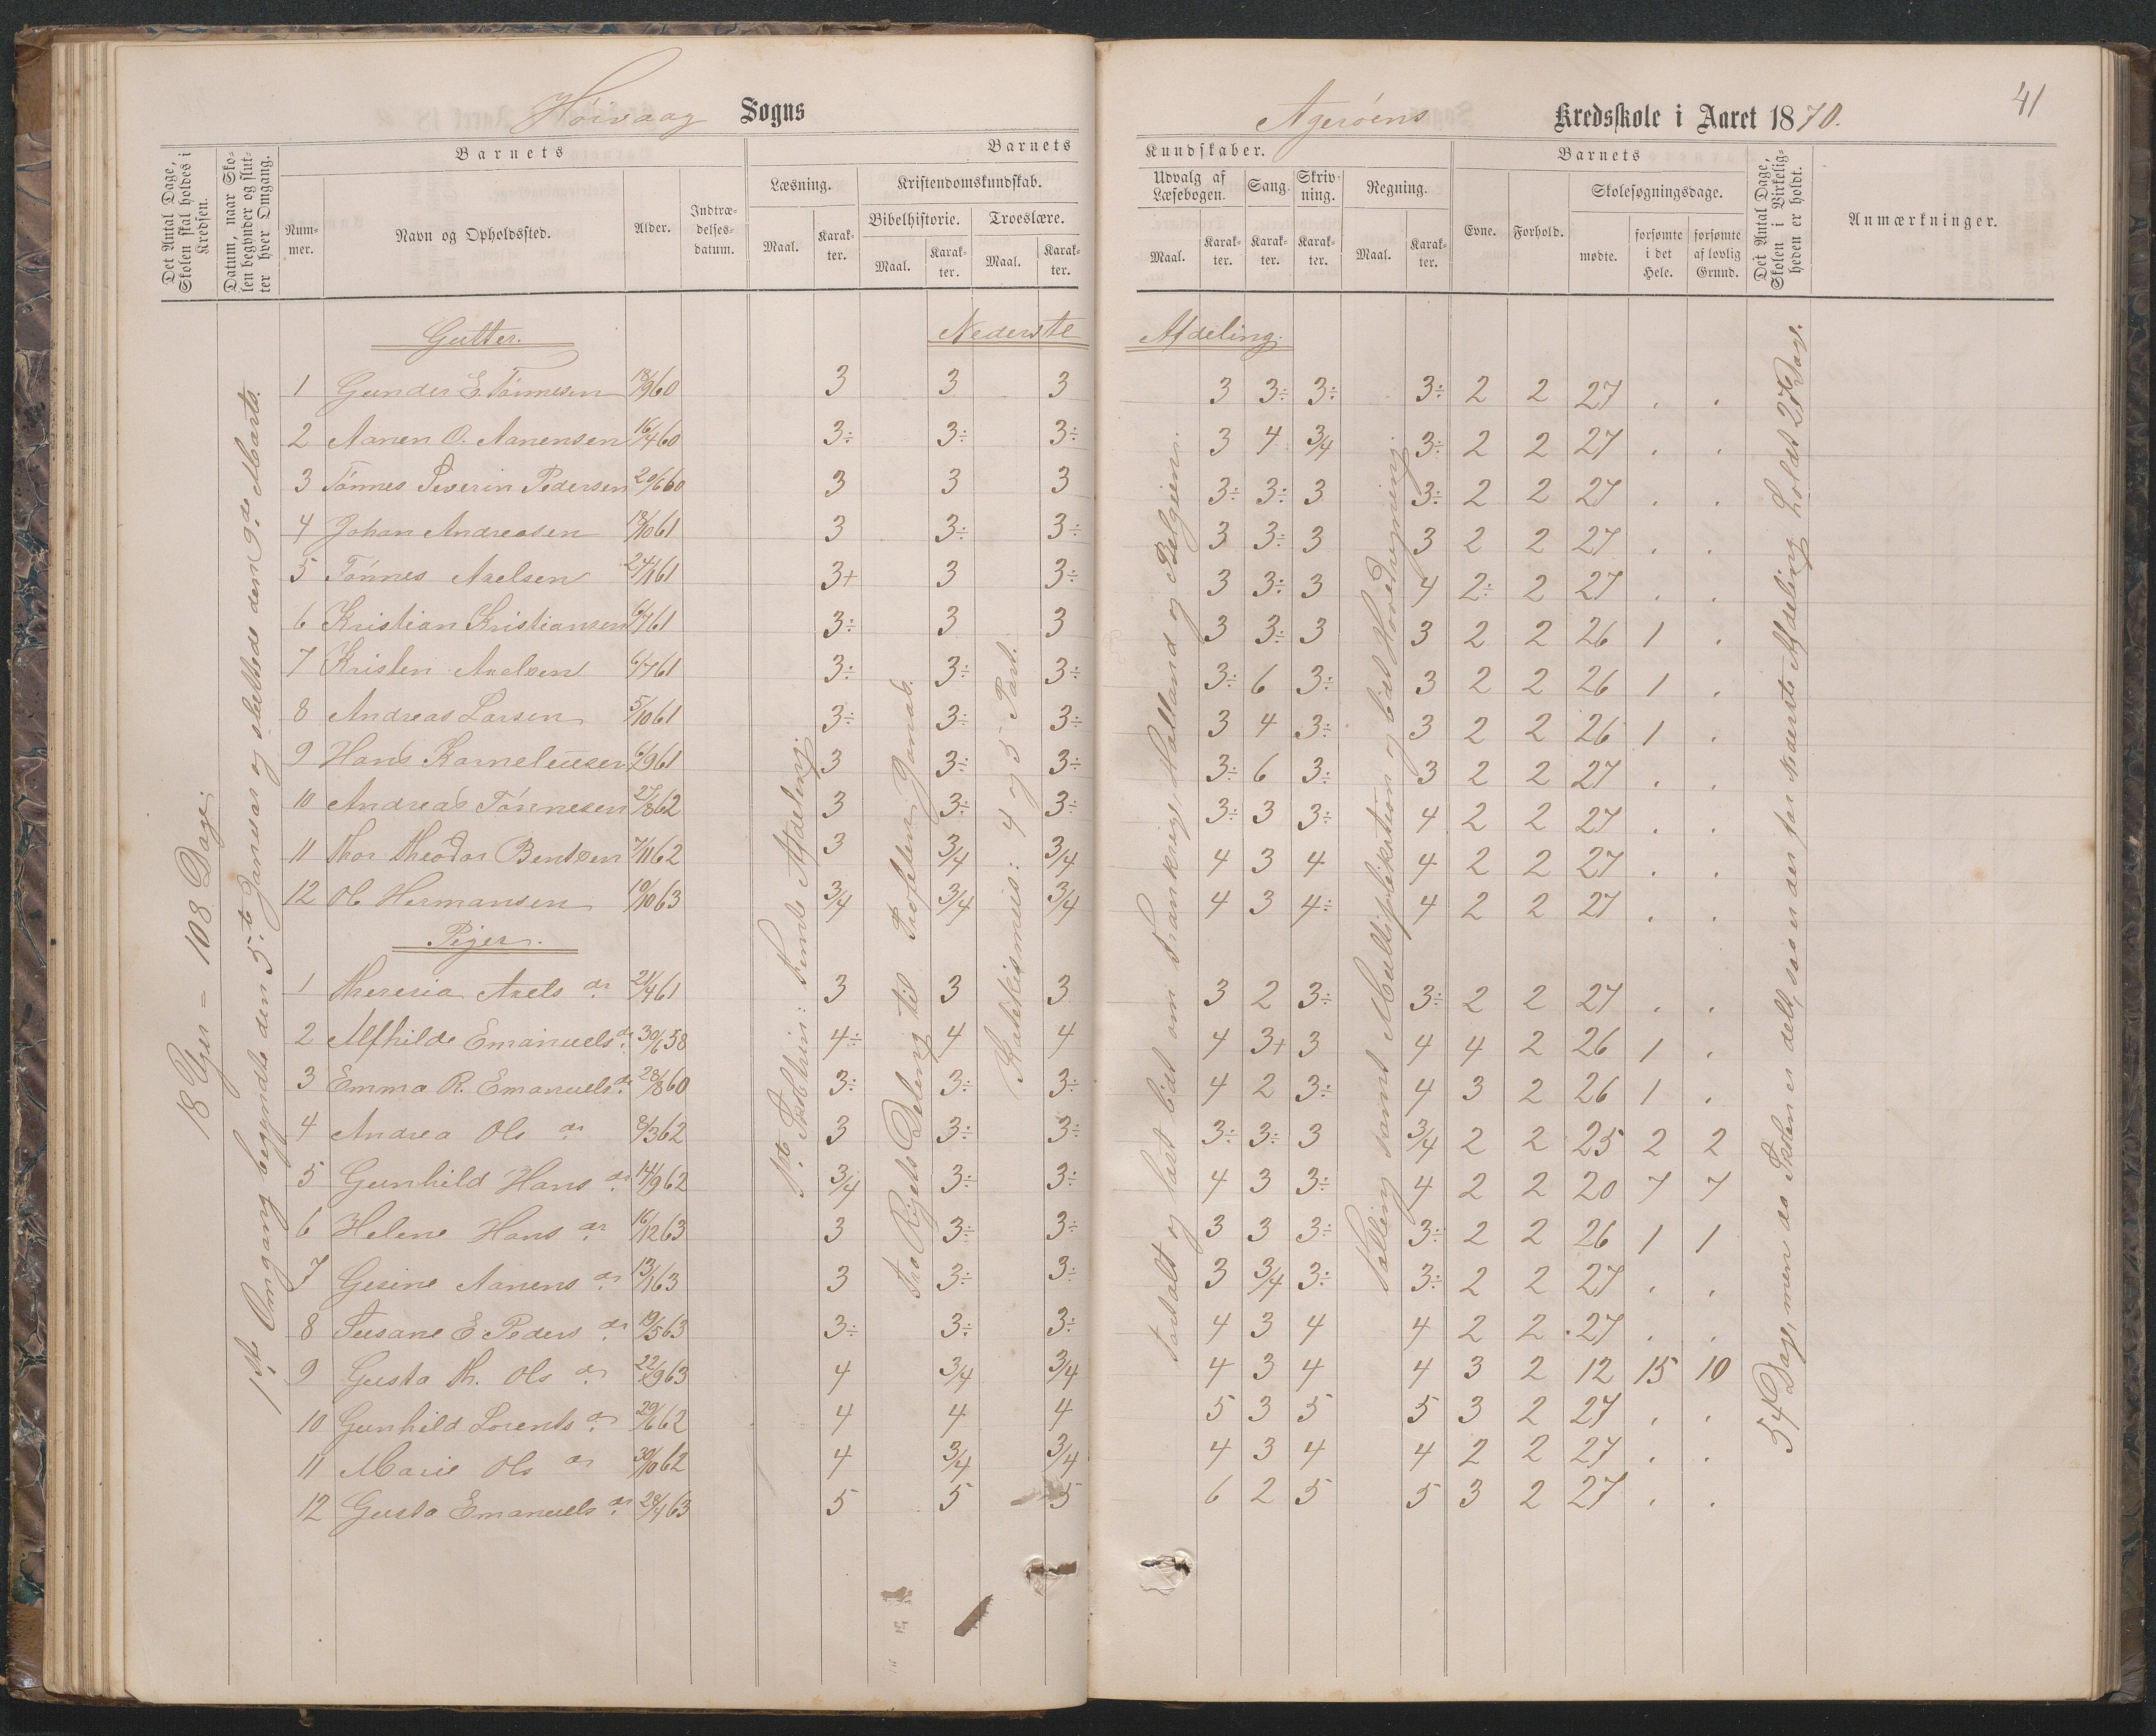 Høivaag Sogns
Agerøens Kredsskole i Aaret 1870.
41
Det Antal Dage, Skolen skal holdes i Kredsen.
Datum, naar Skolen begynder og slutter hver Omgang.
Barnets
Nummer.
Navn og Opholdssted.
Alder.
Indtrædelsesdatum.
Barnets Kundskaber.
Læsning.
Maal.
Karakter.
Kristendomskundskab.
Bibelhistorie.
Maal.
Karakter.
Troeslære.
Maal.
Karakter.
Udvalg af Læsebogen.
Maal.
Karakter.
Sang.
Karakter.
Skrivning.
Karakter.
Regning.
Maal.
Karakter.
Barnets
Evne.
Forhold.
Skolesøgningsdage.
mødte.
forsømte i det Hele.
forsømte af lovlig Grund.
Det Antal Dage, Skolen i Virkeligheden er holdt.
Anmærkninger.
18 Uger = 108 Dage.
1ste Omgang begyndte den 5te Januar og sluttede den 9de Marts.
1ste Skoletrin: Femte Afdeling.
Fra Rigets Deling til Profeten Jonas.
Katekismus: 4 og 5 Part.
Fortalt og læst lidt om Frankrig, Holland og Belgien.
Tælling samt Multiplikation og lidt Hovedregning.
54 Dage, men da Skolen er delt, saa er der for Nederste Afdeling holdt 27 Dage.
Gutter. Nederste Afdeling.
1 Gunder E. Tønnesen 18/9 60 3 3 3 3 3÷ 3÷ 3÷ 2 2 27 . .
2 Aanen O. Aanensen 16/4 60 3÷ 3÷ 3÷ 3 4 3/4 3÷ 2 2 27 . .
3 Tønnes Severin Pedersen 20/6 60 3 3 3 3÷ 3÷ 3 3÷ 2 2 27 . .
4 Johan Andreasen 18/10 61 3 3÷ 3÷ 3 3÷ 3 3 2 2 27 . .
5 Tønnes Axelsen 24/1 61 3+ 3 3÷ 3 3÷ 3 4 2÷ 2 27 . .
6 Kristian Kristiansen 6/7 61 3÷ 3 3 3 3÷ 3 3 2 2 26 1 .
7 Kristen Axelsen 6/7 61 3÷ 3÷ 3÷ 3÷ 6 3÷ 3 2 2 26 1 .
8 Andreas Larsen 5/10 61 3÷ 3÷ 3÷ 3 4 3÷ 3 2 2 26 1 .
9 Hans Korneliusen 6/9 61 3 3÷ 3÷ 3÷ 6 3÷ 3 2 2 27 . .
10 Andreas Tønnesen 27/8 62 3 3÷ 3÷ 3÷ 3 3÷ 4 2 2 27 . .
11 Thor Theodor Bentsen 7/11 62 3 3/4 3/4 4 3 4 4 2 2 27 . .
12 Ole Hermansen 10/10 63 3/4 3/4 3/4 4 3 4÷ 4 2 2 27 . .
Piger.
1 Theresia Axels dr 21/4 61 3 3 3 3 2 3÷ 3÷ 2 2 27 . .
2 Alfhilde Emanuels dr 30/6 58 4÷ 4 4 4 3+ 3 4 4 2 26 1 .
3 Emma R. Emanuels dr 28/8 60 3÷ 3÷ 3÷ 4 2 3÷ 4 3 2 26 1 .
4 Andrea Ols dr 8/3 62 3 3÷ 3÷ 3÷ 3÷ 3 3/4 2 2 25 2 2
5 Gunhild Hans dr 14/9 62 3/4 3÷ 3÷ 4 3 3÷ 4 2 2 20 7 7
6 Helene Hans dr 16/12 63 3 3÷ 3÷ 3 3 3÷ 3÷ 2 2 26 1 1
7 Gesine Aanens dr 13/1 63 3 3÷ 3÷ 3 3/4 3÷ 3÷ 2 2 27 . .
8 Susane E Peders dr 19/5 63 3÷ 3÷ 3÷ 4 3 4 4 2 2 27 . .
9 Gusta Th. Ols dr 22/9 63 4 3/4 3/4 4 3 4 4 3 2 12 15 10
10 Gunhild Lorents dr 29/6 62 4 4 4 5 3 5 5 3 2 27 . .
11 Marie Ols dr 30/10 62 4 3/4 3/4 4 3 4 4 2 2 27 . .
12 Gusta Emanuels dr 28/4 63 5 5 5 6 2 5 5 3 2 27 . .